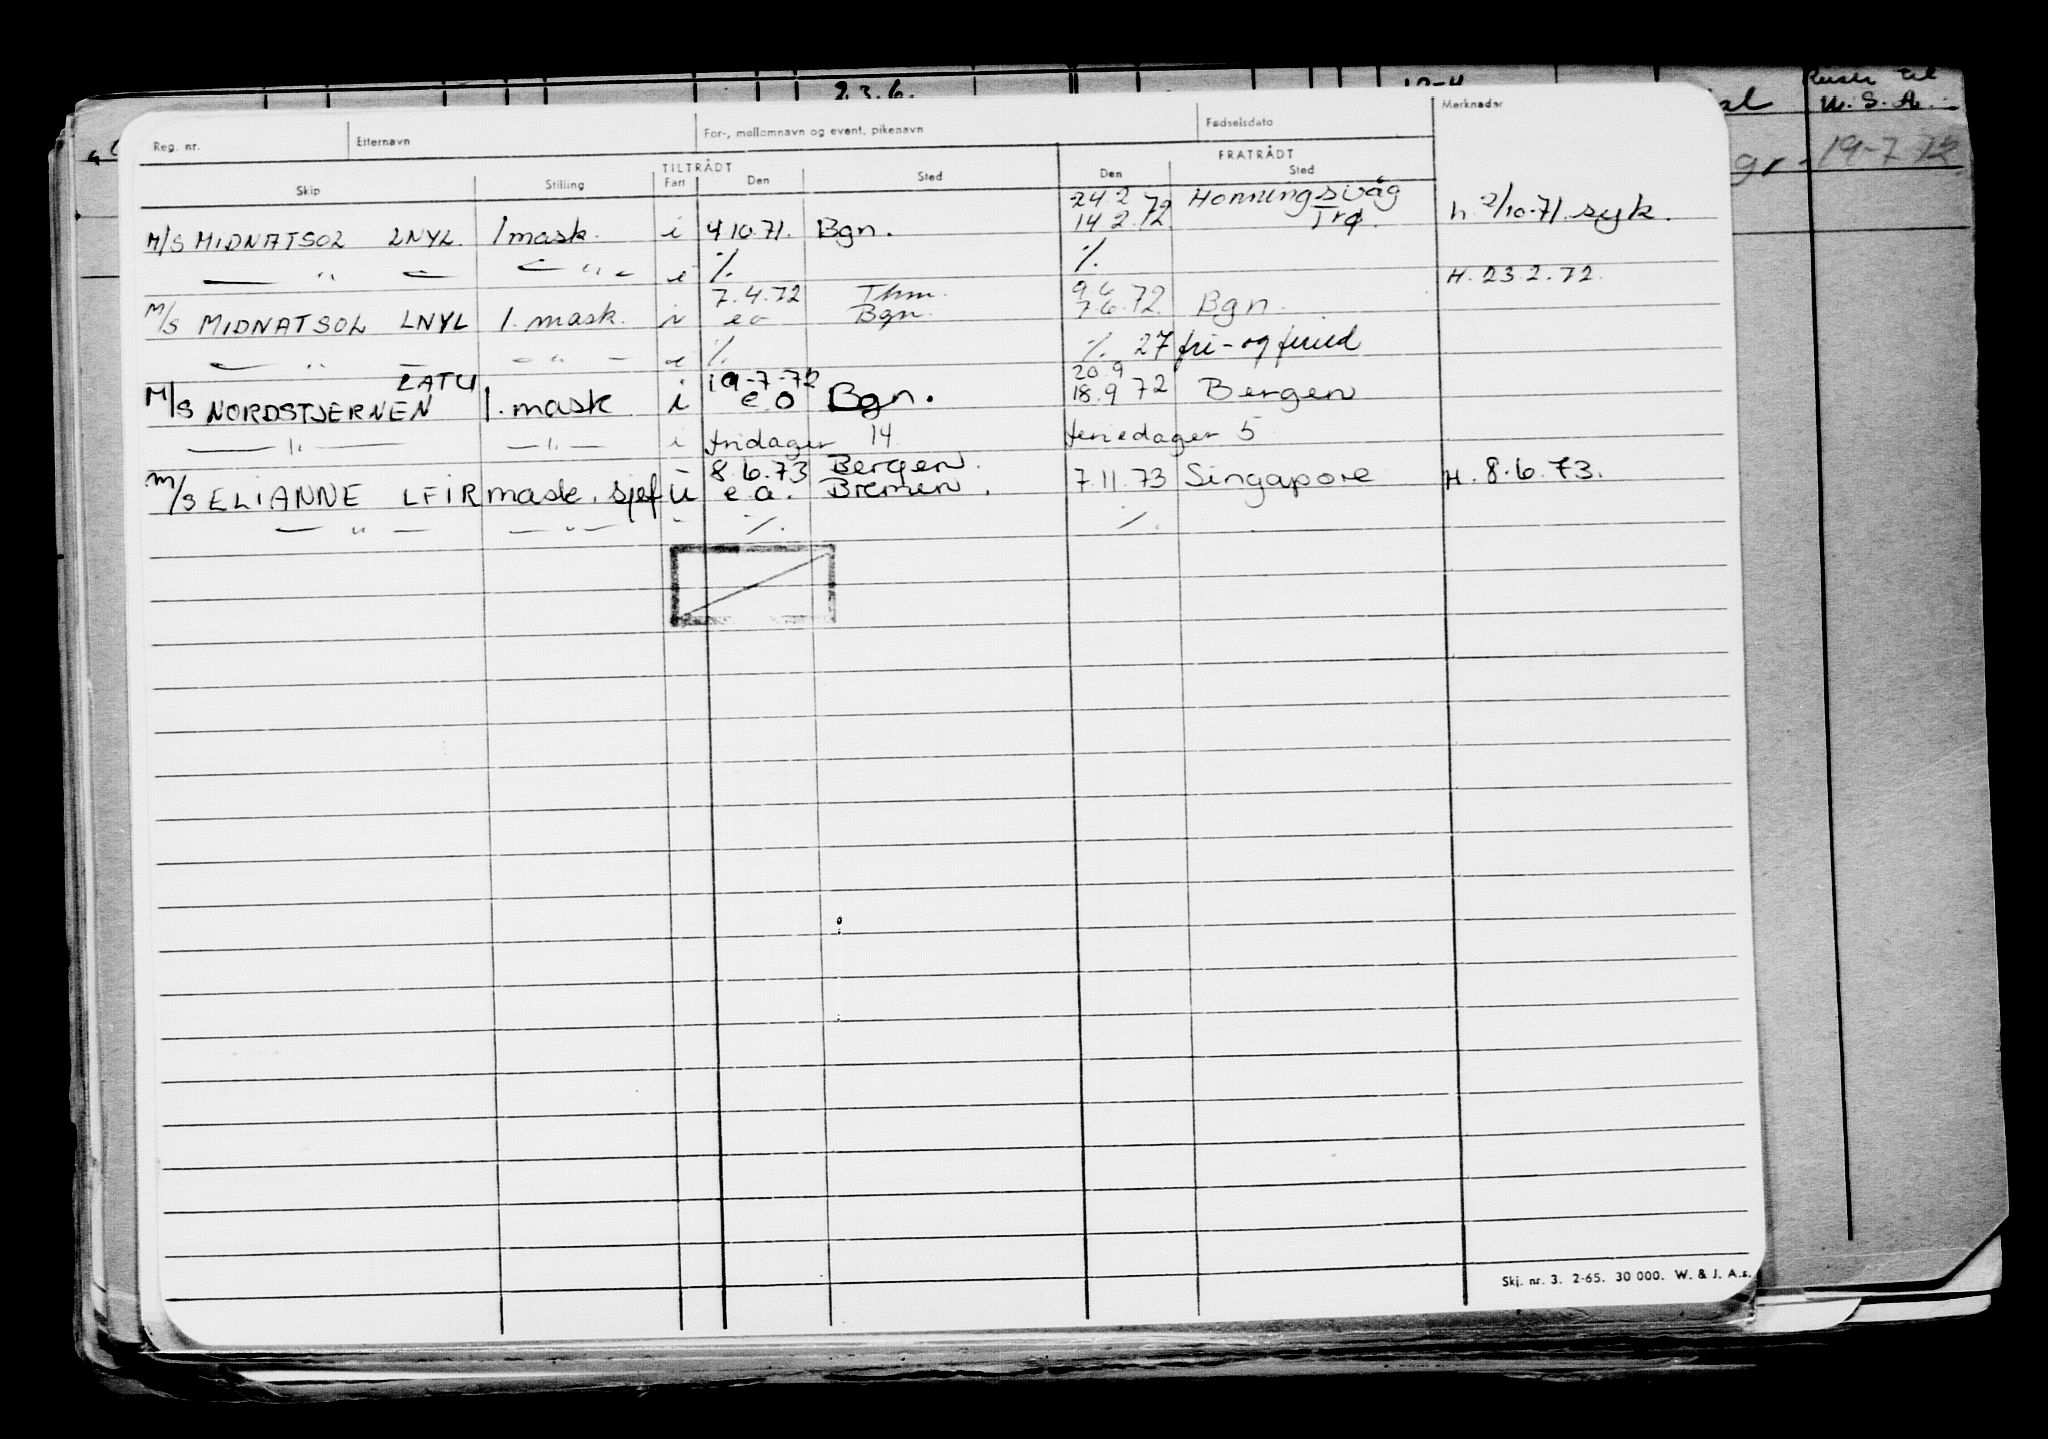 23.6. 10-4 Reiser til
al U. S. A.
Reg. nr. Etternavn For-, mellomnavn og event. pikenavn Fødselsdato Merknader
TILTRÅDT FRATRÅDT
Skip Stilling Fart Den Sted Den Sted
24.2 72 Honningsvåg
M/S MIDNATSOL LNYL. 1 mask. i 4 10.71. Bgn. 14 2.72. Trø. h. 2/10-71. syk.
— " — — " — i % %
7.4.72 Thm. 9.6 H. 23.2.72.
M/S MIDNATSOL LNYL 1. mask. i eo Bgn. 7.6.72. Bgn.
— " — — " — i % % 27 fri- og feried
LATU 19-7-72 20.9
M/S NORDSTJERNEN 1. mask i e.o Bgn. 18.9 72 Bergen
— " — — " — i fridager 14 feriedager 5
8.6.73 Bergen.
M/S ELIANNE LFIR mask. sjef u e.a. Bremen. 7.11.73 Singapore H. 8.6.73.
— " — — " — " % %
gr. 19-7 72
Skj. nr. 3. 2-65. 30 000. W. & J. A.s.